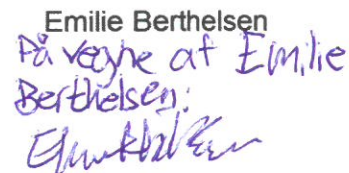 Emilie Berthelsen
På vegne af Emilie
Berthelsen: